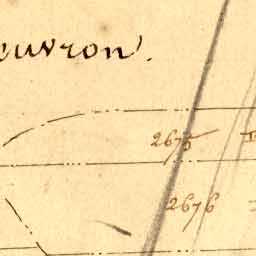 euvron.
2675
2676